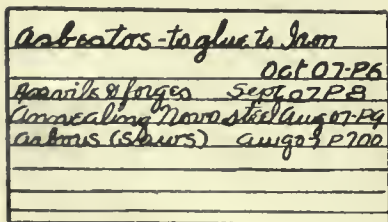 asbestors - to glue to Iron
Oct 07-P6
Anvils & forges Sept 07 P8
Annealing Novo steel Aug 07-P9
arbors (Saws) Aug 07 P700